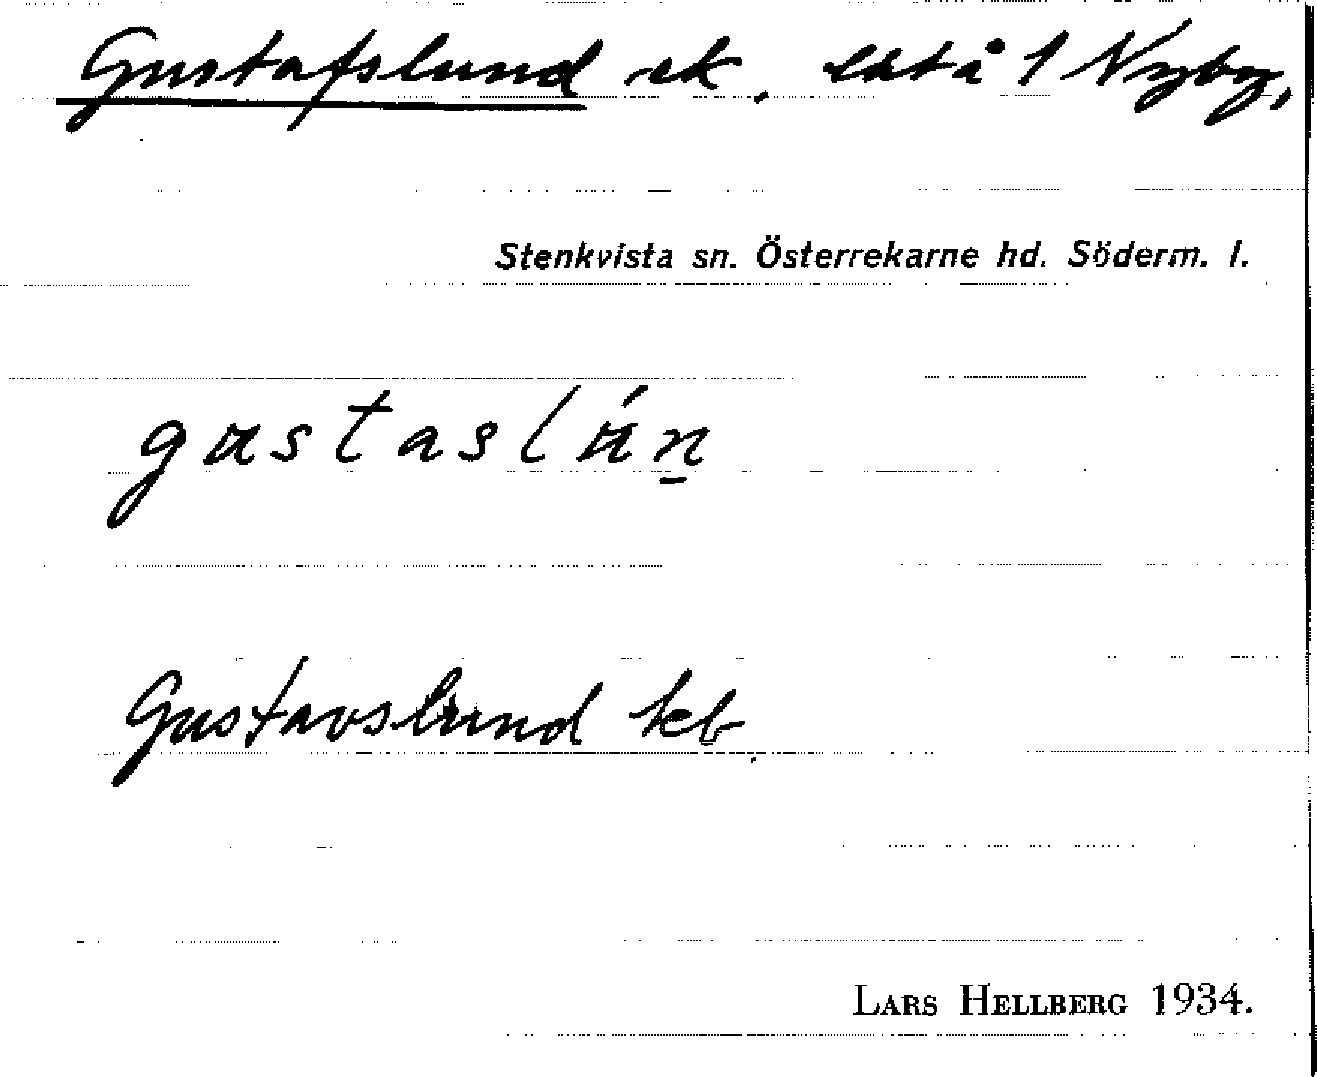 Gustafslund ek. , lht å 1 Nyby,
Stenkvista sn. Österrekarne hd. Söderm. l.
gustaslún
Gustavslund kb.
LARS HELLBERG 1934.